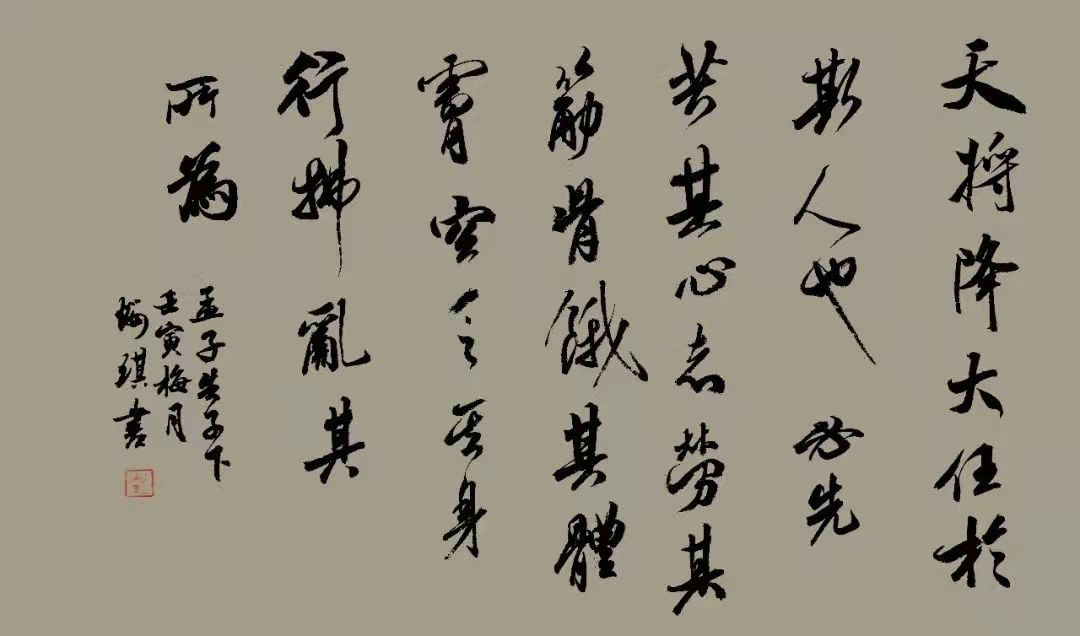 天將降大任於
斯人也 必先
苦其心志勞其
筋骨餓其體
膚空乏其身
行拂亂其
所為
孟子告子下
壬寅梅月
琪書